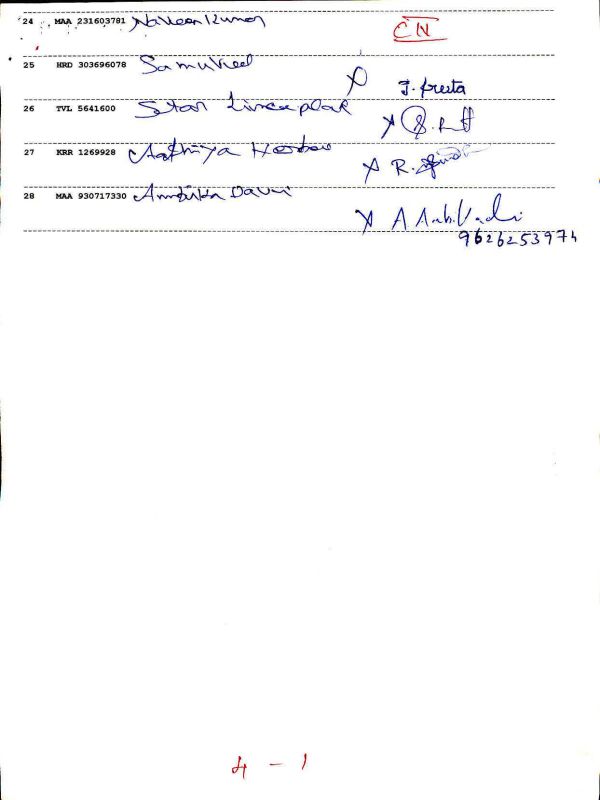 24 MAA 231603781 Naveen Kumar CN
25 HRD 303696078 Samuveel
J. freeta
26 TVL 5641600 Star
27 KRR 1269928 Aathiya
R.
28 MAA 930717330 Ambika Davi
A
9626253974
4 - 1